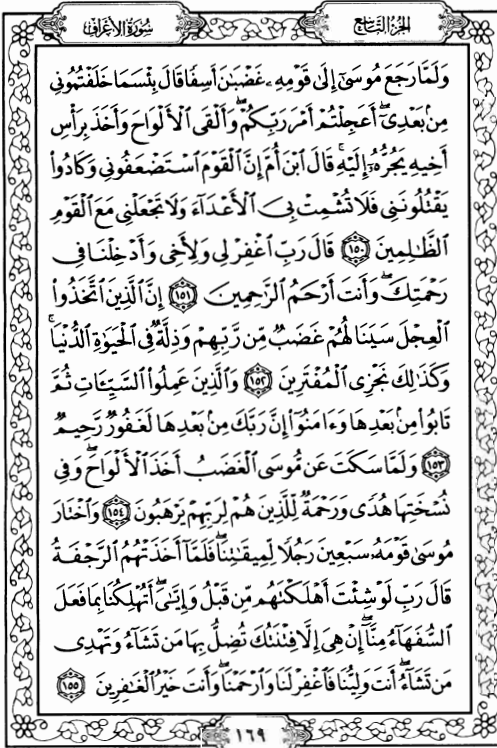 سُورَةُ الأَعْرَافِ الجُزءُ التَّاسِعُ
وَلَمَّا رَجَعَ مُوسَىٰٓ إِلَىٰ قَوْمِهِۦ غَضْبَٰنَ أَسِفًا قَالَ بِئْسَمَا خَلَفْتُمُونِي
مِنۢ بَعْدِيٓۖ أَعَجِلْتُمْ أَمْرَ رَبِّكُمْۖ وَأَلْقَى ٱلْأَلْوَاحَ وَأَخَذَ بِرَأْسِ
أَخِيهِ يَجُرُّهُۥٓ إِلَيْهِۚ قَالَ ٱبْنَ أُمَّ إِنَّ ٱلْقَوْمَ ٱسْتَضْعَفُونِي وَكَادُوا۟
يَقْتُلُونَنِي فَلَا تُشْمِتْ بِيَ ٱلْأَعْدَآءَ وَلَا تَجْعَلْنِي مَعَ ٱلْقَوْمِ
ٱلظَّٰلِمِينَ ١٥٠ قَالَ رَبِّ ٱغْفِرْ لِي وَلِأَخِي وَأَدْخِلْنَا فِي
رَحْمَتِكَۖ وَأَنتَ أَرْحَمُ ٱلرَّٰحِمِينَ ١٥١ إِنَّ ٱلَّذِينَ ٱتَّخَذُوا۟
ٱلْعِجْلَ سَيَنَالُهُمْ غَضَبٌ مِّن رَّبِّهِمْ وَذِلَّةٌ فِي ٱلْحَيَوٰةِ ٱلدُّنْيَاۚ
وَكَذَٰلِكَ نَجْزِي ٱلْمُفْتَرِينَ ١٥٢ وَٱلَّذِينَ عَمِلُوا۟ ٱلسَّيِّـَٔاتِ ثُمَّ
تَابُوا۟ مِنۢ بَعْدِهَا وَءَامَنُوٓا۟ إِنَّ رَبَّكَ مِنۢ بَعْدِهَا لَغَفُورٌ رَّحِيمٌ
١٥٣ وَلَمَّا سَكَتَ عَن مُّوسَى ٱلْغَضَبُ أَخَذَ ٱلْأَلْوَاحَۖ وَفِي
نُسْخَتِهَا هُدًى وَرَحْمَةٌ لِّلَّذِينَ هُمْ لِرَبِّهِمْ يَرْهَبُونَ ١٥٤ وَٱخْتَارَ
مُوسَىٰ قَوْمَهُۥ سَبْعِينَ رَجُلًا لِّمِيقَٰتِنَاۖ فَلَمَّآ أَخَذَتْهُمُ ٱلرَّجْفَةُ
قَالَ رَبِّ لَوْ شِئْتَ أَهْلَكْتَهُم مِّن قَبْلُ وَإِيَّٰيَۖ أَتُهْلِكُنَا بِمَا فَعَلَ
ٱلسُّفَهَآءُ مِنَّآۖ إِنْ هِيَ إِلَّا فِتْنَتُكَ تُضِلُّ بِهَا مَن تَشَآءُ وَتَهْدِي
مَن تَشَآءُۖ أَنتَ وَلِيُّنَا فَٱغْفِرْ لَنَا وَٱرْحَمْنَاۖ وَأَنتَ خَيْرُ ٱلْغَٰفِرِينَ ١٥٥
١٦٩